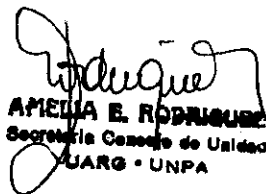 Rodriguez
AMELIA E. RODRIGUEZ
Secretaria Consejo de Unidad
UARG - UNPA